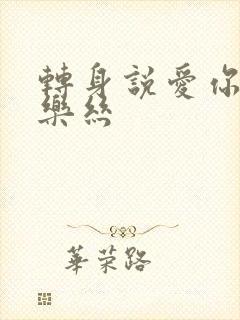 轉身說愛你
樂絲
華榮路